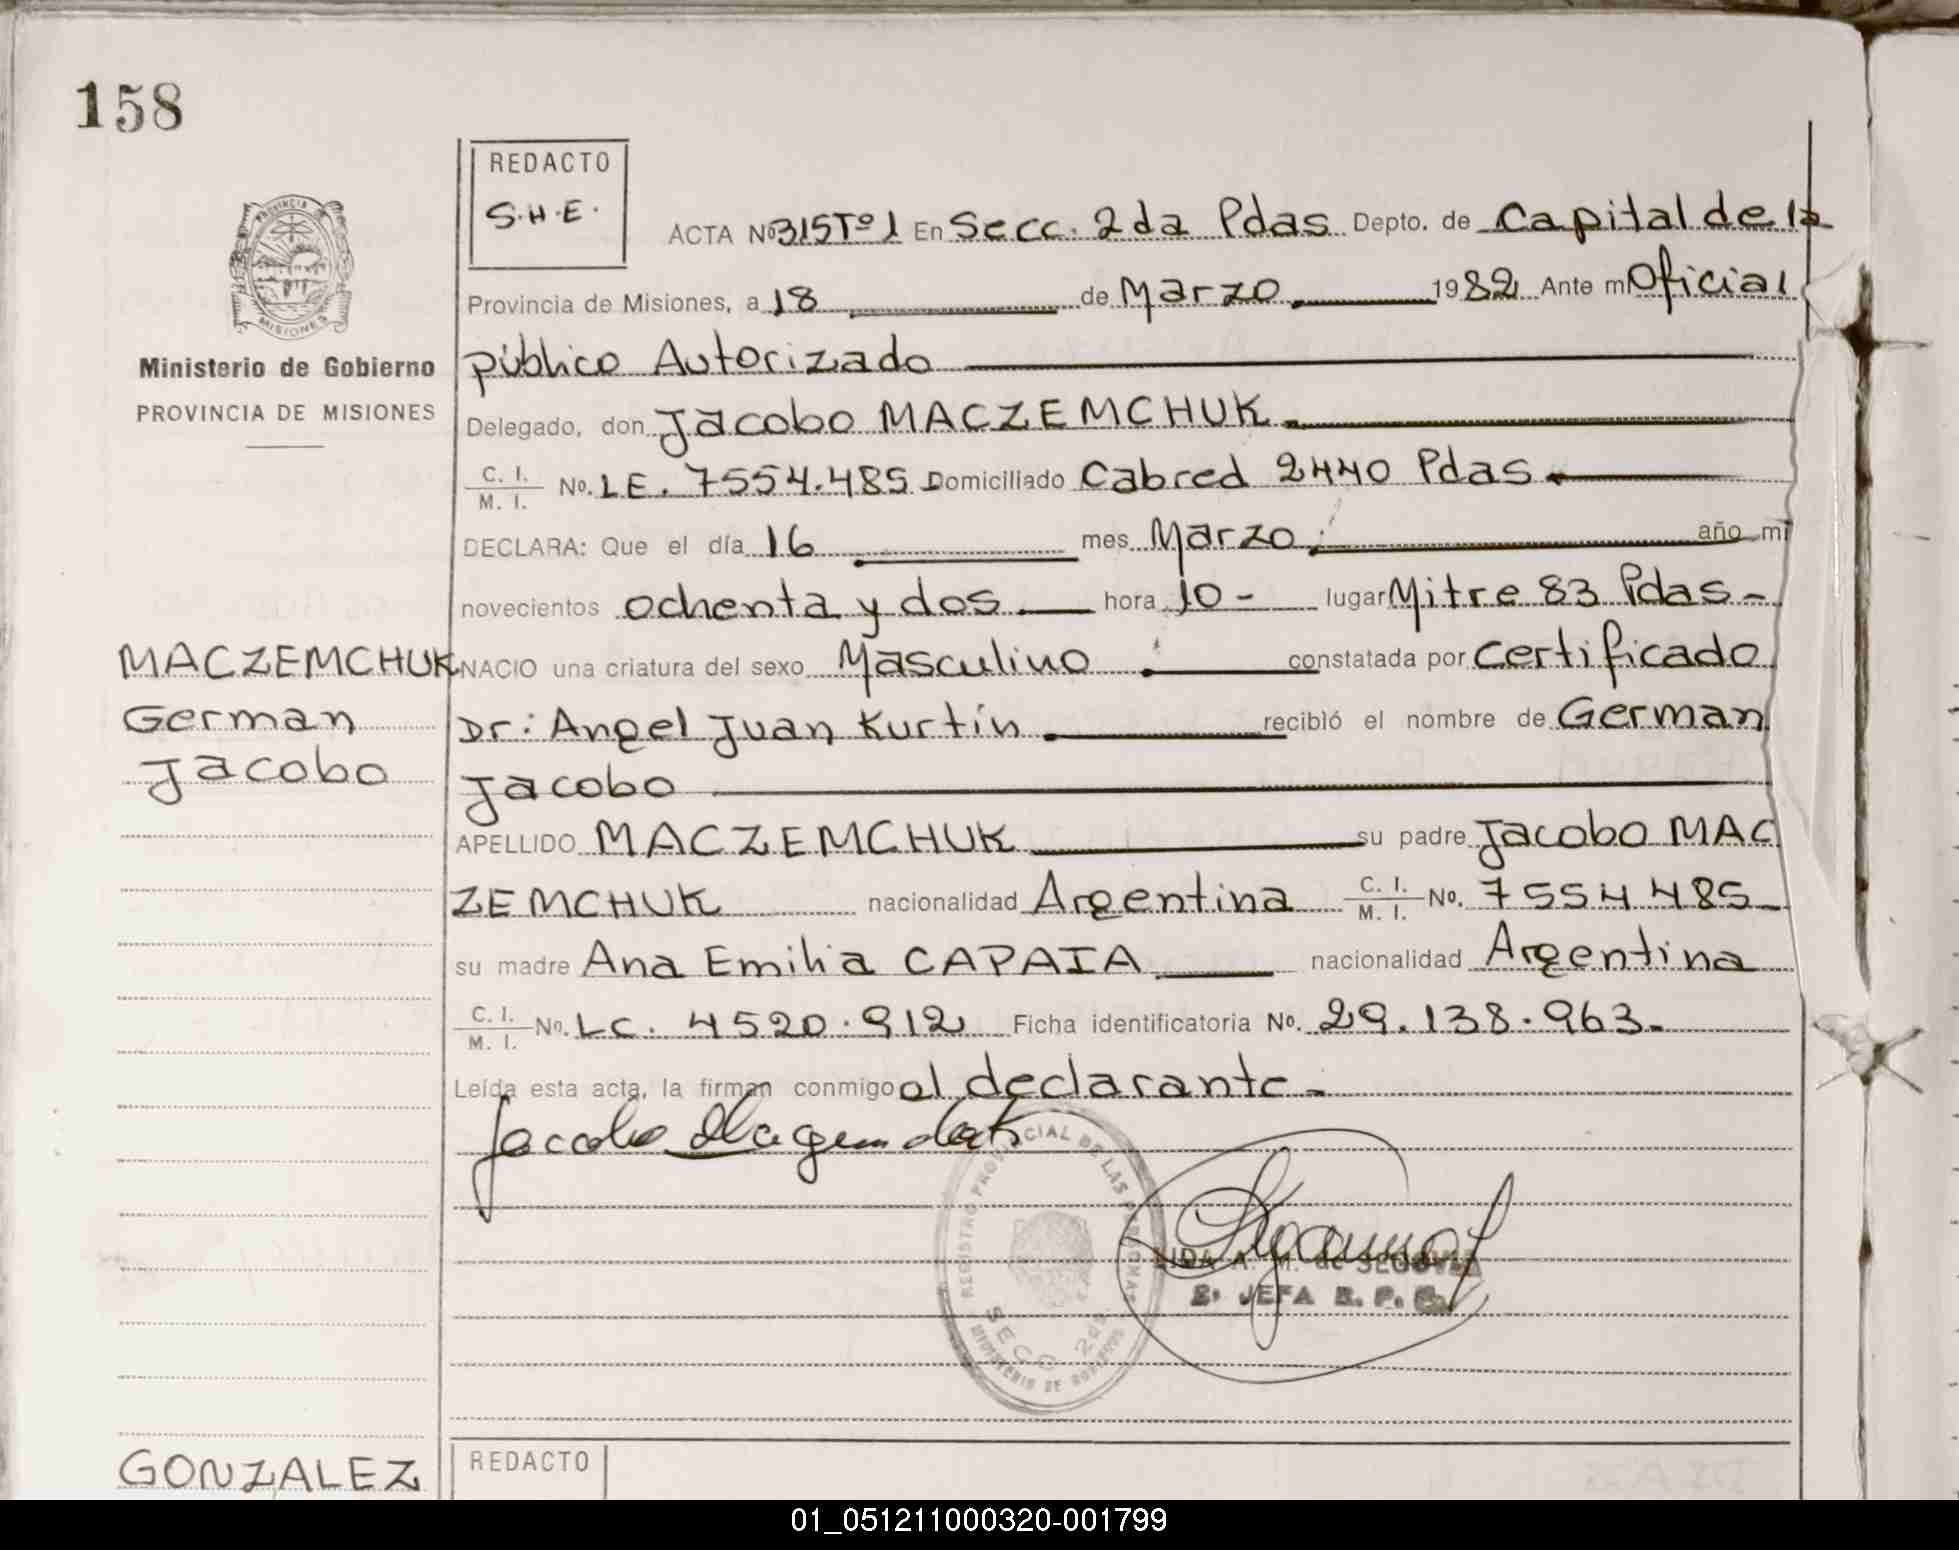 158
REDACTO
S.H.E.
ACTA Nº 315 Tº 1 En Secc. 2da Pdas Depto. de Capital de la
Provincia de Misiones, a 18 de Marzo 1982 Ante mi Oficial
público Autorizado
Ministerio de Gobierno
PROVINCIA DE MISIONES
Delegado, don Jacobo MACZEMCHUK
C. I. / M. I. No. LE. 7554.485 Domiciliado Cabred 2440 Pdas
DECLARA: Que el día 16 mes Marzo año mi
novecientos ochenta y dos hora 10- lugar Mitre 83 Pdas-
MACZEMCHUK
German
Jacobo
NACIO una criatura del sexo Masculino constatada por Certificado
Dr: Angel Juan Kurtín recibió el nombre de German
Jacobo
APELLIDO MACZEMCHUK su padre Jacobo MAC
ZEMCHUK nacionalidad Argentina C. I. / M. I. No. 7554485
su madre Ana Emilia CAPAIA nacionalidad Argentina
C. I. / M. I. No. LC. 4520.912 Ficha identificatoria No. 29.138.963.
Leída esta acta, la firman conmigo el declarante-
Jacobo
REGISTRO PROVINCIAL DE LAS PERSONAS
SECC 2da
MINISTERIO DE GOBIERNO
LIDA A. M. de SEGOVIA
JEFA R. P.
GONZALEZ
REDACTO
01_051211000320-001799